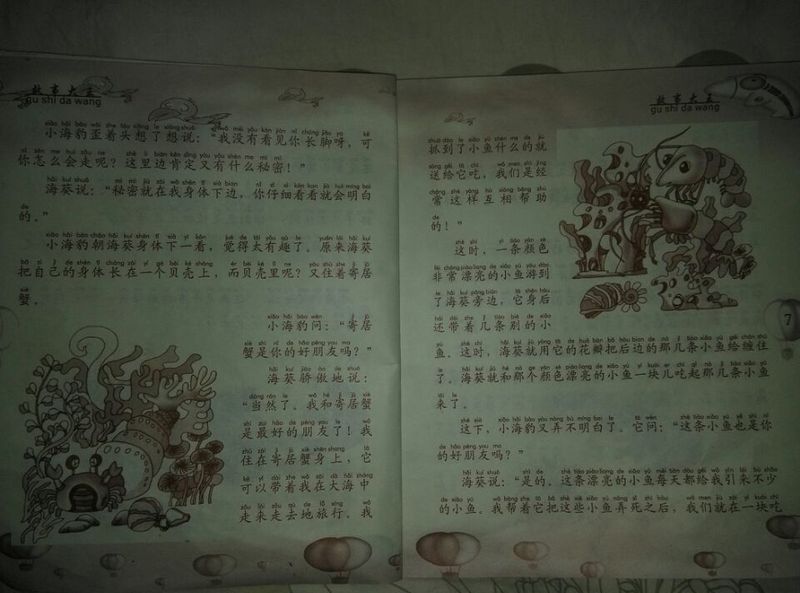 故事大王
gu shi da wang
小海豹歪着头想了想说：“我没有看见你长脚呀，可
你怎么会走呢？这里边肯定又有什么秘密！”
海葵说：“秘密就在我身体下边，你仔细看看就会明白
的。”
小海豹朝海葵身体下一看，觉得太有趣了。原来海葵
把自己的身体长在一个贝壳上，而贝壳里呢？又住着寄居
蟹。
小海豹问：“寄居
蟹是你的好朋友吗？”
海葵骄傲地说：
“当然了。我和寄居蟹
是最好的朋友了！我
住在寄居蟹身上，它
可以带着我在大海中
走来走去地旅行。我
故事大王
gu shi da wang
抓到了小鱼什么的就
送给它吃，我们是经
常这样互相帮助
的！”
这时，一条颜色
非常漂亮的小鱼游到
了海葵旁边，它身后
还带着几条别的小
鱼。这时，海葵就用它的花瓣把后边的那几条小鱼给缠住
了。海葵就和那个颜色漂亮的小鱼一块儿吃起那几条小鱼
来了。
这下，小海豹又弄不明白了。它问：“这条小鱼也是你
的好朋友吗？”
海葵说：“是的。这条漂亮的小鱼每天都给我引来不少
的小鱼。我帮着它把这些小鱼弄死之后，我们就在一块吃
7